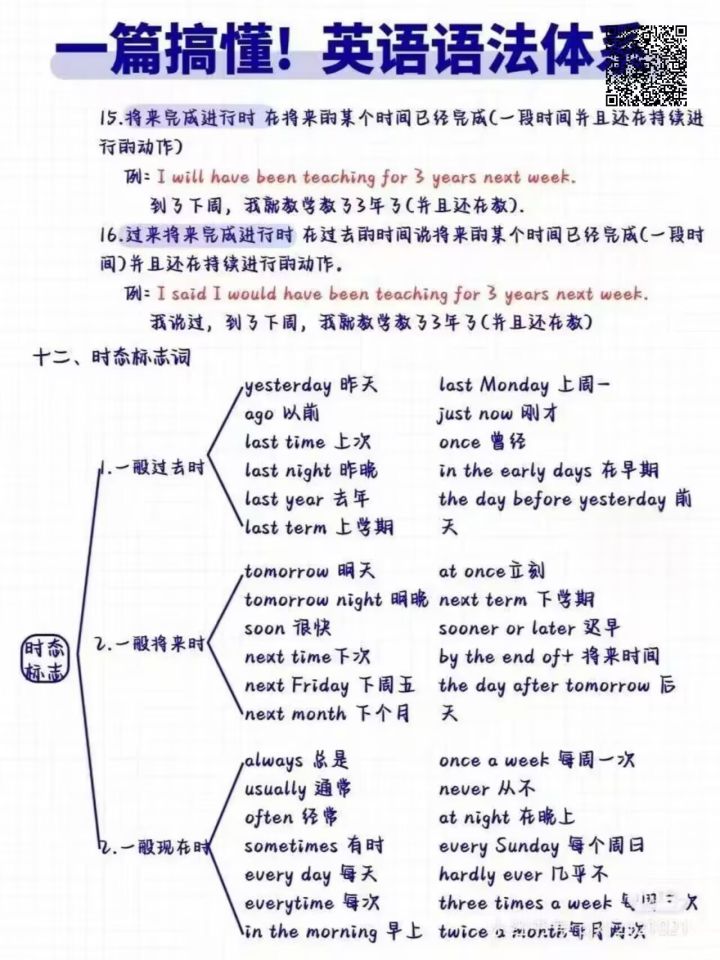 一篇搞懂！英语语法体系
15.将来完成进行时 在将来的某个时间已经完成(一段时间并且还在持续进
行的动作)
例: I will have been teaching for 3 years next week.
到了下周，我就教学教了3年了(并且还在教).
16.过来将来完成进行时 在过去的时间说将来的某个时间已经完成(一段时
间)并且还在持续进行的动作。
例: I said I would have been teaching for 3 years next week.
我说过，到了下周，我就教学教了3年了(并且还在教)
十二、时态标志词
时态
标志
1.一般过去时
yesterday 昨天
ago 以前
last time 上次
last night 昨晚
last year 去年
last term 上学期
last Monday 上周一
just now 刚才
once 曾经
in the early days 在早期
the day before yesterday 前
天
2.一般将来时
tomorrow 明天
tomorrow night 明晚
soon 很快
next time下次
next Friday 下周五
next month 下个月
at once立刻
next term 下学期
sooner or later 迟早
by the end of+ 将来时间
the day after tomorrow 后
天
2.一般现在时
always 总是
usually 通常
often 经常
sometimes 有时
every day 每天
everytime 每次
in the morning 早上
once a week 每周一次
never 从不
at night 在晚上
every Sunday 每个周日
hardly ever 几乎不
three times a week 每周三次
twice a month每月两次